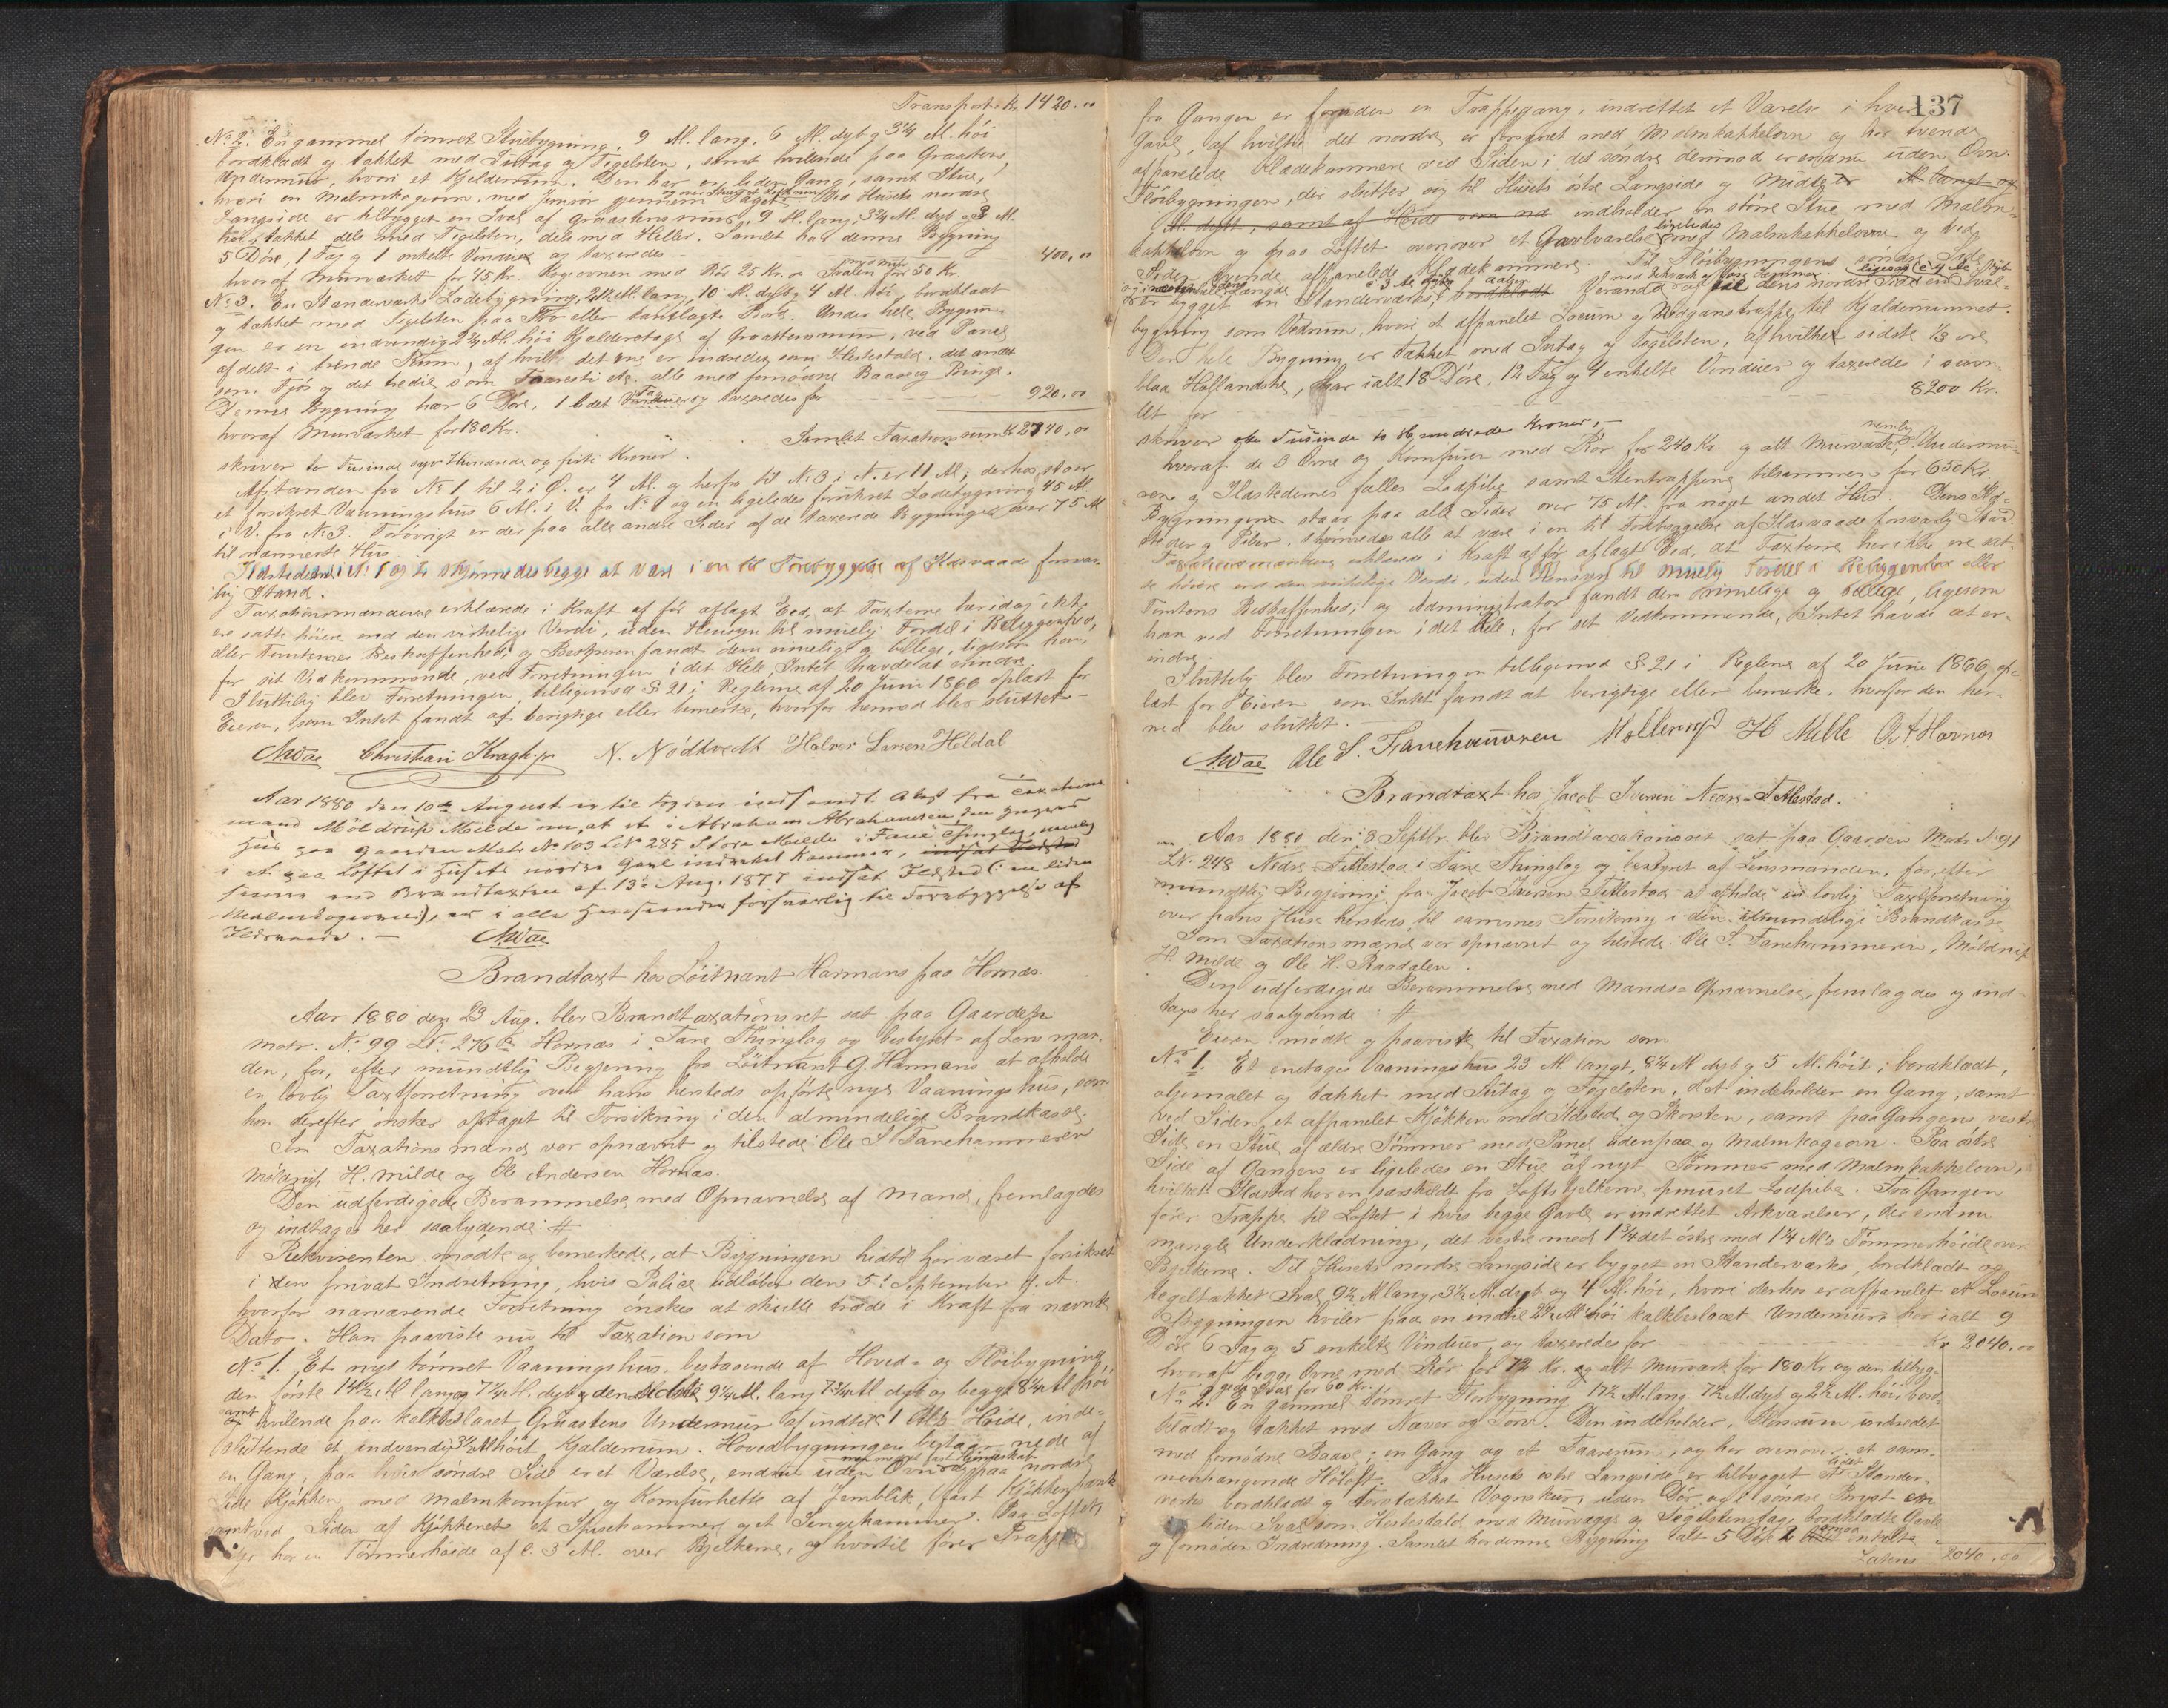 Transport. Kr. 1420.00
No 2. En gammel tømret Stuebygning, 9 Al. lang, 6 Al. dyb og 3¾ Al. høi
bordklædt og takket med Tutag og Tegelsten, samt hvilende paa Graastens
Undermuur, hvori et Kjelderrum. Den har en liden Gang, samt Stue,
hvori en Malmkogeovn, med Jernrør gjennem Taget. Ved Husets nordre
Langside er tilbygget en Sval af Graastensmuur, 9 Al. lang, 3¾ Al. dyb og 3 Al.
høi, takket dels med Tegelsten, dels med Heller. Samlet har denne Bygning
5 Døre, 1 Fag og 1 enkelte Vinduer og taxeredes 400,00
hvoraf Murværket for 45 Kr. Kogeovnen med Rør 25 Kr. og Svalen for 50 Kr.
No 3. En Standerværks Ladebygning, 21½ Al. lang, 10 Al. dyb og 4 Al. høi, bordklædt
og takket med Tegelsten paa eller tætlagte Bord. Under hele Bygnin-
gen er en indvendig Al. høi Kjelderetage af Graastensmuur, ved Panel
afdelt i trende Rum, af hvilke det ene er indredet som Hestestald, det andet
som Fjøs og det tredie som Faaresti etc. alle med fornødne Baase og Binge.
Denne Bygning har 6 Døre, 1 lidet Fag og taxeredes for 920,00
hvoraf Murværket for 180 Kr. Samlet Taxationssum K 2740,00
skriver to Tusinde syv Hundrede og firti Kroner.
Afstanden fra No 1 til 2 i Ø. er 4 Al. og herfra til No 3 i N. er 11 Al; derhos staar
et forsikret Vaaningshus 6 Al. i V. fra No 1 og en ligeledes forsikret Ladebygning 45 Al.
i V. fra No 3. Forøvrigt er der paa alle andre Sider af de taxerede Bygninger over 75 Al
til nærmeste Hus.
Ildstederne i No 1 og 2 skjønnedes begge at være i en til Forebyggelse af Ildsvaade forsvar-
lig Stand.
Taxationsmændene erklærede i Kraft af før aflagt Eed, at Taxterne her idag ikke
ere satte høiere end den virkelige Verdi, uden Hensyn til muelig Fordel i Beliggenhed,
eller Tomternes Beskaffenhed; og Bestyreren fandt dem rimelige og billige, ligesom han,
for sit Vedkommende, ved Forretningen i det Hele, Intet havde at erindre.
Sluttelig blev Forretningen, tilligemed § 21 i Reglerne af 20 Juni 1866 oplæst for
Eieren, som Intet fandt at berigtige eller bemerke, hvorfor hermed blev sluttet.
A. Waae Christian Kragh jr N. Nødtvedt Halvor Larsen Heldal
Aar 1880 den 10de August er til Logson indsendt Alest fra Taxations
mand Møldrup Milde om, at et i Abraham Abrahamsen, den yngres
Hus paa Gaarden Matr No 103 LNo 285 Store Milde i Fane Thinglag, nemlig
i et paa Loftet i Husets nordre Gavl indrettet Kammer,
senere end Brandtaxten af 13de Aug. 1877 indsat Ildsted (: en liden
Malmkogeovn :), er i alle Henseender forsvarlig til Forebyggelse af
Ildsvaade. — A. Waae
Brandtaxt hos Løitnant Harmens paa Hornæs.
Aar 1880 den 23 Aug. blev Brandtaxationsret sat paa Gaarden
Matr. No 99 LNo 276 a Hornæs i Fane Thinglag og bestyret af Lensman-
den, for, efter mundtlig Begjering fra Løitnant G. Harmens at afholde
en lovlig Taxtforretning over hans hersteds opførte nye Vaaningshus, som
han derefter ønsker optaget til Forsikring i den almindelige Brandkasse.
Som Taxationsmænd var opnævnt og tilstede: Ole S. Fanehammeren
Møldrup H. Milde og Ole Andersen Hornæs.
Den udferdigede Berammelse med Opnævnelse af Mænd, fremlagdes
og indtages her saalydende: #
Rekvirenten mødte og bemerkede, at Bygningen hidtil har været forsikret
i den privat Indretning, hvis Police udløber den 5te September d. A.
hvorfor nærværende Forretning ønskes at skulle træde i Kraft fra nævnte
Dato. Han paaviste nu til Taxation som
No 1. Et nyt tømret Vaaningshus, bestaaende af Hoved- og Fløibygning
den første 14½ Al lang og 7¼ Al. dyb og den sidste 9¼ Al. lang 7¾ Al dyb og begge 8¼ Al høi
samt hvilende paa kalkbeslaaet Graastens Undermuur af indtil 1 Al's Høide, inde-
sluttende et indvendig 3½ Al høit Kjelderrum. Hovedbygningen bestaar nede af
en Gang, paa hvis søndre Side er et Værelse, endnu uden Ovn og paa nordre
Side Kjøkken med Malmkomfur og Komfurhette af Jernblik, fast Kjøkkenbænk
samt ved Siden af Kjøkkenet et Spisekammer og et Sengekammer. Paa Loftet
der har en Tømmerhøide af c. 3 Al. over Bjelkerne, og hvortil fører Trappe
137
fra Gangen er foruden en Trappegang, indrettet et Værelse i hver
Gavl, af hvilke det nordre er forsynet med Malmkakkelovn og har tvende
afpanelede Klædekammere ved Siden; det søndre derimod er endnu uden Ovn.
Fløibygningen, der slutter sig til Husets østre Langside og Midte, er Al. langt og
Al. dybt, samt af Høide som indholder en større Stue med Malm-
kakkelovn og paa Loftet ovenover et Gavlværelse ligeledes med Malmkakkelovn og ved
Siden tvende afpanelede Klædekammere. Til Fløibygningens søndre Side
er bygget en Standerværks bordklædt aaben Veranda og til dens nordre Side en Sval-
bygning som Vedrum, hvori et afpanelet Locum og Nedgangstrappe til Kjelderrummet.
Den hele Bygning er takket med Sutag og Tegelsten, af hvilke sidste ⅓ ere
blaa Hollandske, har ialt 18 Døre, 12 Fag og 4 enkelte Vinduer og taxeredes i sam-
let for 8200 Kr.
skriver otte Tusinde to Hundrede Kroner,
hvoraf de 3 Ovne og Komfuren med Rør for 240 Kr. og alt Murværk, nemlig Undermu-
ren og Ildstedernes fælles Lodpibe samt Stentrapperne tilsammen for 650 Kr.
Bygningerne staar paa alle Sider over 75 Al. fra noget andet Hus. Dens Ild-
steder og Piber skjønnedes alle at være i en til Forebyggelse af Ildsvaade forsvarlig Stand
Taxationsmændene erklærede i Kraft af før aflagt Eed, at Taxterne her ikke ere sat-
te høiere end den virkelige Verdi, uden Hensyn til muelig Fordel i Beliggenhed eller
Tomtens Beskaffenhed; og Administrator fandt dem rimelige og billige, ligesom
han ved Forretningen i det Hele, for sit Vedkommende, Intet havde at er-
indre.
Sluttelig blev Forretningen tilligemed § 21 i Reglerne af 20 Juni 1866, op-
læst for Eieren som Intet fandt at berigtige eller bemerke, hvorfor den her-
med blev sluttet.
A. Waae Ole S. Fanehammeren Møllerup H Milde O. A. Hornæs
Brandtaxt hos Jacob Iversen Nedre-Titlestad.
Aar 1880 den 8 Septbr. blev Brandtaxationsret sat paa Gaarden Matr. No 91
LNo 248 Nedre Titlestad i Fane Thinglag og bestyret af Lensmanden, for, efter
mundtlig Begjering fra Jacob Iversen Titlestad at afholde en lovlig Taxtforretning
over hans Huse hersteds til sammes Forsikring i den almindelige Brandkasse
Som Taxationsmænd var opnævnt og tilstede: Ole S. Fanehammeren, Møldrup
H. Milde og Ole H. Raadalen.
Den udferdigede Berammelse med Mands-Opnævnelse, fremlagdes og ind-
tages her saalydende: #
Eieren mødte og paaviste til Taxation som
No 1. Et enetages Vaaningshus 23 Al. langt, 8¼ Al dyb og 5 Al. høit; bordklædt,
oljemalet og takket med Sutag og Tegelsten, det indeholder en Gang, samt
ved Siden et afpanelet Kjøkken med Ildsted og Skorsten, samt paa Gangens vestre
Side en Stue af ældre Tømmer med Panel udenpaa og Malmkogeovn. Paa østre
Side af Gangen er ligeledes en Stue af nyt Tømmer med Malmkakkelovn,
hvilket Ildsted har en særskildt fra Loftsbjelkerne opmuret Lodpibe. Fra Gangen
fører Trappe til Loftet i hvis begge Gavle er indrettet Arkværelser, der endnu
mangle Underklædning, det vestre med 1¾ det østre med 1¼ Al's Tømmerhøide over
Bjelkerne. Til Husets nordre Langside er bygget en Standerværks, bordklædt og
tegeltækket Sval 9½ Al lang, 3½ Al. dyb og 4 Al. høi, hvori derhos er afpanelet et Locum
Bygningen hviler paa en indtil 2½ Al høi kalkbeslaaet Undermuur, har ialt 9
Døre 6 Fag og 5 enkelte Vinduer, og taxeredes for Kr 2040.00
hvoraf begge Ovne med Rør for 72 Kr. og alt Murværk for 180 Kr. og den tilbyg-
gede Sval for 60 Kr.
No 2. En gammel tømret Florbygning 17½ Al. lang 7½ Al. dyb og 2½ Al. høi, bord-
klædt og takket med Næver og Torv. Den indeholder, Florrum indredet
med fornødne Baase; en Gang og et Faarerum, og har ovenover et sam-
menhængende Høloft. Paa Husets østre Langside er tilbygget et lidet Stander-
verks bordklædt og Torvtakket Vognskur, uden Dør og i søndre Bryst en
liden Sval som Hestestald med Murvægge og Tegelstenstag, bordklædt Gavl
og fornøden Indredning. Samlet har denne Bygning ialt 5 Døre 2 smaa enkelte
Latens 2040.00